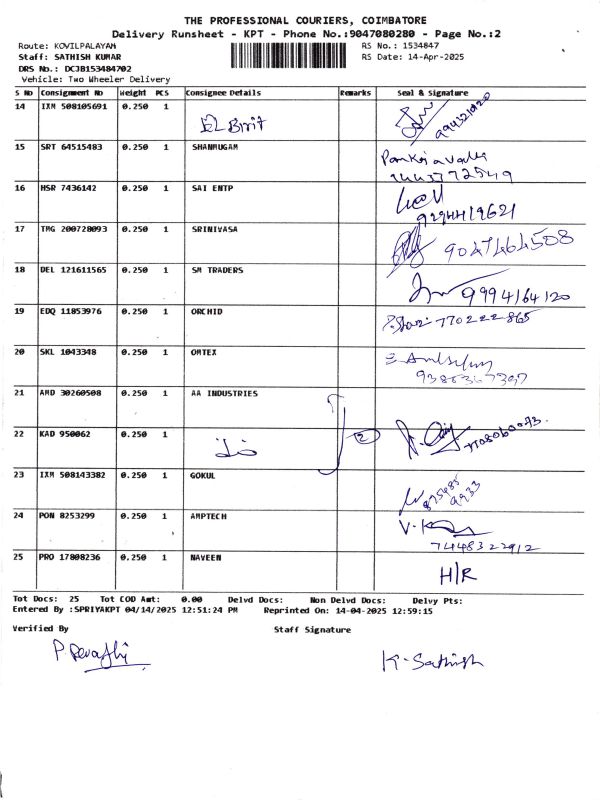 THE PROFESSIONAL COURIERS, COIMBATORE
Delivery Runsheet - KPT - Phone No.:9047080280 - Page No.:2
Route: KOVILPALAYAM RS No.: 1534847
Staff: SATHISH KUMAR RS Date: 14-Apr-2025
DRS No.: DCJB153484702
Vehicle: Two Wheeler Delivery
S NO Consignment No Weight PCS Consignee Details Remarks Seal & Signature
14 IXM 508105691 0.250 1
15 SRT 64515483 0.250 1 SHANMUGAM
9443772549
16 HSR 7436142 0.250 1 SAI ENTP
9294419621
17 TMG 200728093 0.250 1 SRINIVASA 9047464508
18 DEL 121611565 0.250 1 SM TRADERS
9994164120
19 EDQ 11853976 0.250 1 ORCHID 770222865
20 SKL 1043348 0.250 1 OMTEX
9380367397
21 AMD 30260508 0.250 1 AA INDUSTRIES
22 KAD 950062 0.250 1 2
23 IXM 508143382 0.250 1 GOKUL
875485
9933
24 PON 8253299 0.250 1 AMPTECH
7448322912
25 PRO 17808236 0.250 1 NAVEEN
H/R
Tot Docs: 25 Tot COD Amt: 0.00 Delvd Docs: Non Delvd Docs: Delvy Pts:
Entered By :SPRIYAKPT 04/14/2025 12:51:24 PM Reprinted On: 14-04-2025 12:59:15
Verified By Staff Signature
K. Sathish